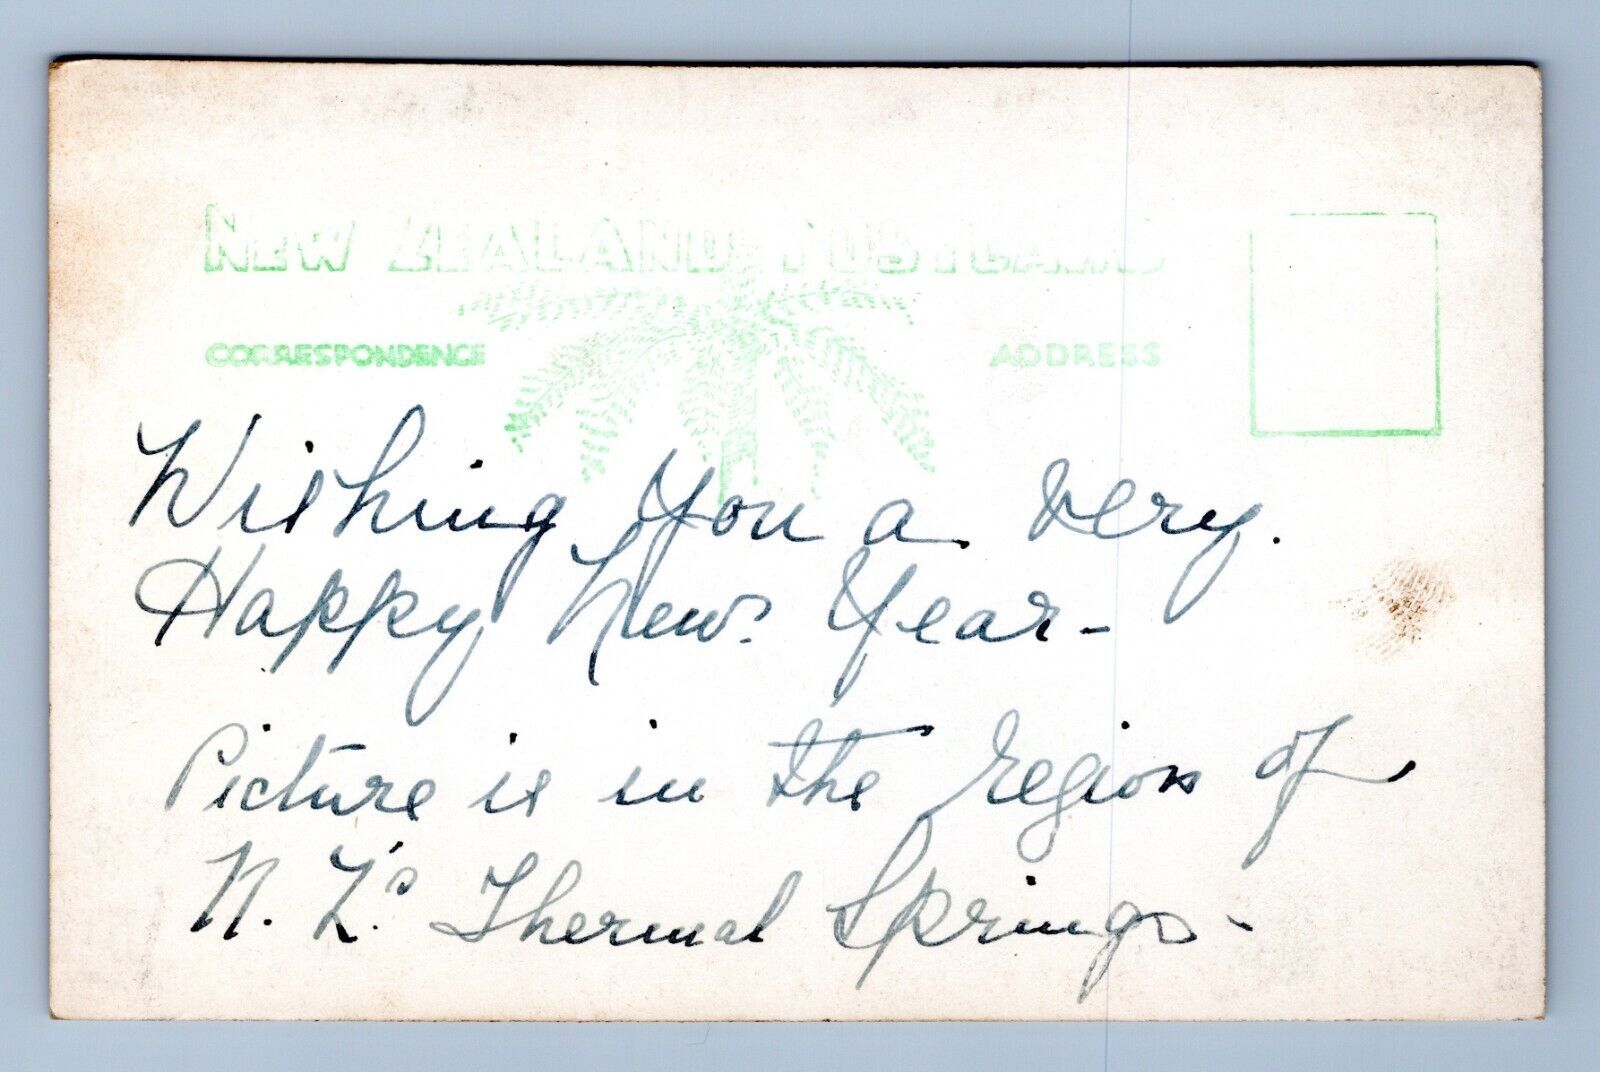 NEW ZEALAND POSTCARD
CORRESPONDENCE ADDRESS
Wishing You a Very.
Happy New. Year-
Picture is in the region of
N. Z.'s Thermal Springs-